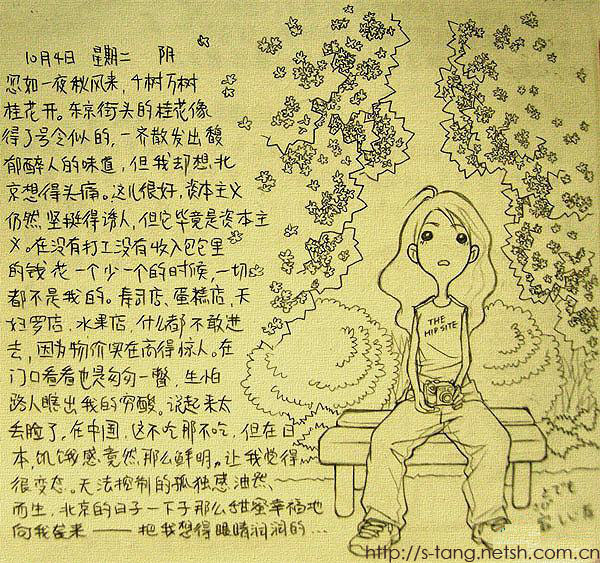 10月4日 星期二 阴
忽如一夜秋风来，千树万树
桂花开。东京街头的桂花像
得了号令似的，一齐散发出馥
郁醉人的味道，但我却想北
京想得头痛。这儿很好，资本主义
仍然坚挺得诱人，但它毕竟是资本主
义。在没有打工没有收入包它里
的钱花一个少一个的时候，一切
都不是我的。寿司店、蛋糕店、天
妇罗店、水果店，什么都不敢进
去，因为物价实在高得惊人。在
门口看看也是匆匆一瞥，生怕
路人瞧出我的穷酸。说起来太
丢脸了，在中国，这不吃那不吃，但在日
本，饥饿感竟然那么鲜明，让我觉得
很变态。无法控制的孤独感油然
而生，北京的日子一下子那么甜蜜幸福地
向我袭来——把我想得眼睛润润的…
THE
HIP SITE
http://s-tang.netsh.com.cn